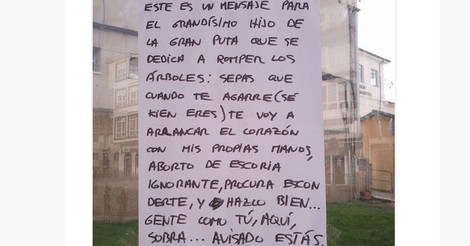 ESTE ES UN MENSAJE PARA
EL GRANDÍSIMO HIJO DE
LA GRAN PUTA QUE SE
DEDICA A ROMPER LOS
ÁRBOLES: SEPAS QUE
CUANDO TE AGARRE (SÉ
KIEN ERES) TE VOY A
ARRANCAR EL CORAZÓN
CON MIS PROPIAS MANOS,
ABORTO DE ESCORIA
IGNORANTE, PROCURA ESCON
DERTE, Y HAZLO BIEN...
GENTE COMO TÚ, AQUÍ,
SOBRA... AVISADO ESTÁS.